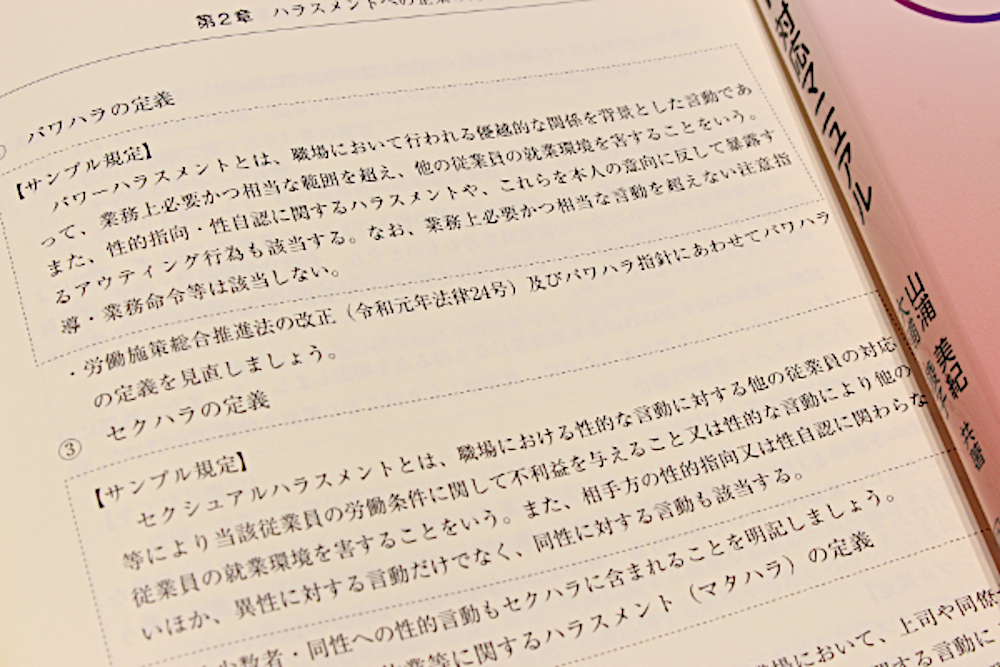 第2章 ハラスメントへの企業の
パワハラの定義
【サンプル規定】
パワーハラスメントとは、職場において行われる優越的な関係を背景とした言動であ
って、業務上必要かつ相当な範囲を超え、他の従業員の就業環境を害することをいう。
また、性的指向・性自認に関するハラスメントや、これらを本人の意向に反して暴露す
るアウティング行為も該当する。なお、業務上必要かつ相当な言動を超えない注意指
導・業務命令等は該当しない。
・労働施策総合推進法の改正（令和元年法律24号）及びパワハラ指針にあわせてパワハラ
の定義を見直しましょう。
③ セクハラの定義
【サンプル規定】
セクシュアルハラスメントとは、職場における性的な言動に対する他の従業員の対応
等により当該従業員の労働条件に関して不利益を与えること又は性的な言動により他の
従業員の就業環境を害することをいう。また、相手方の性的指向又は性自認に関わらな
いほか、異性に対する言動だけでなく、同性に対する言動も該当する。
少数者・同性への性的言動もセクハラに含まれることを明記しましょう。
業等に関するハラスメント（マタハラ）の定義
場において、上司や同僚
する言動に
マニュアル
山浦 美紀
共著